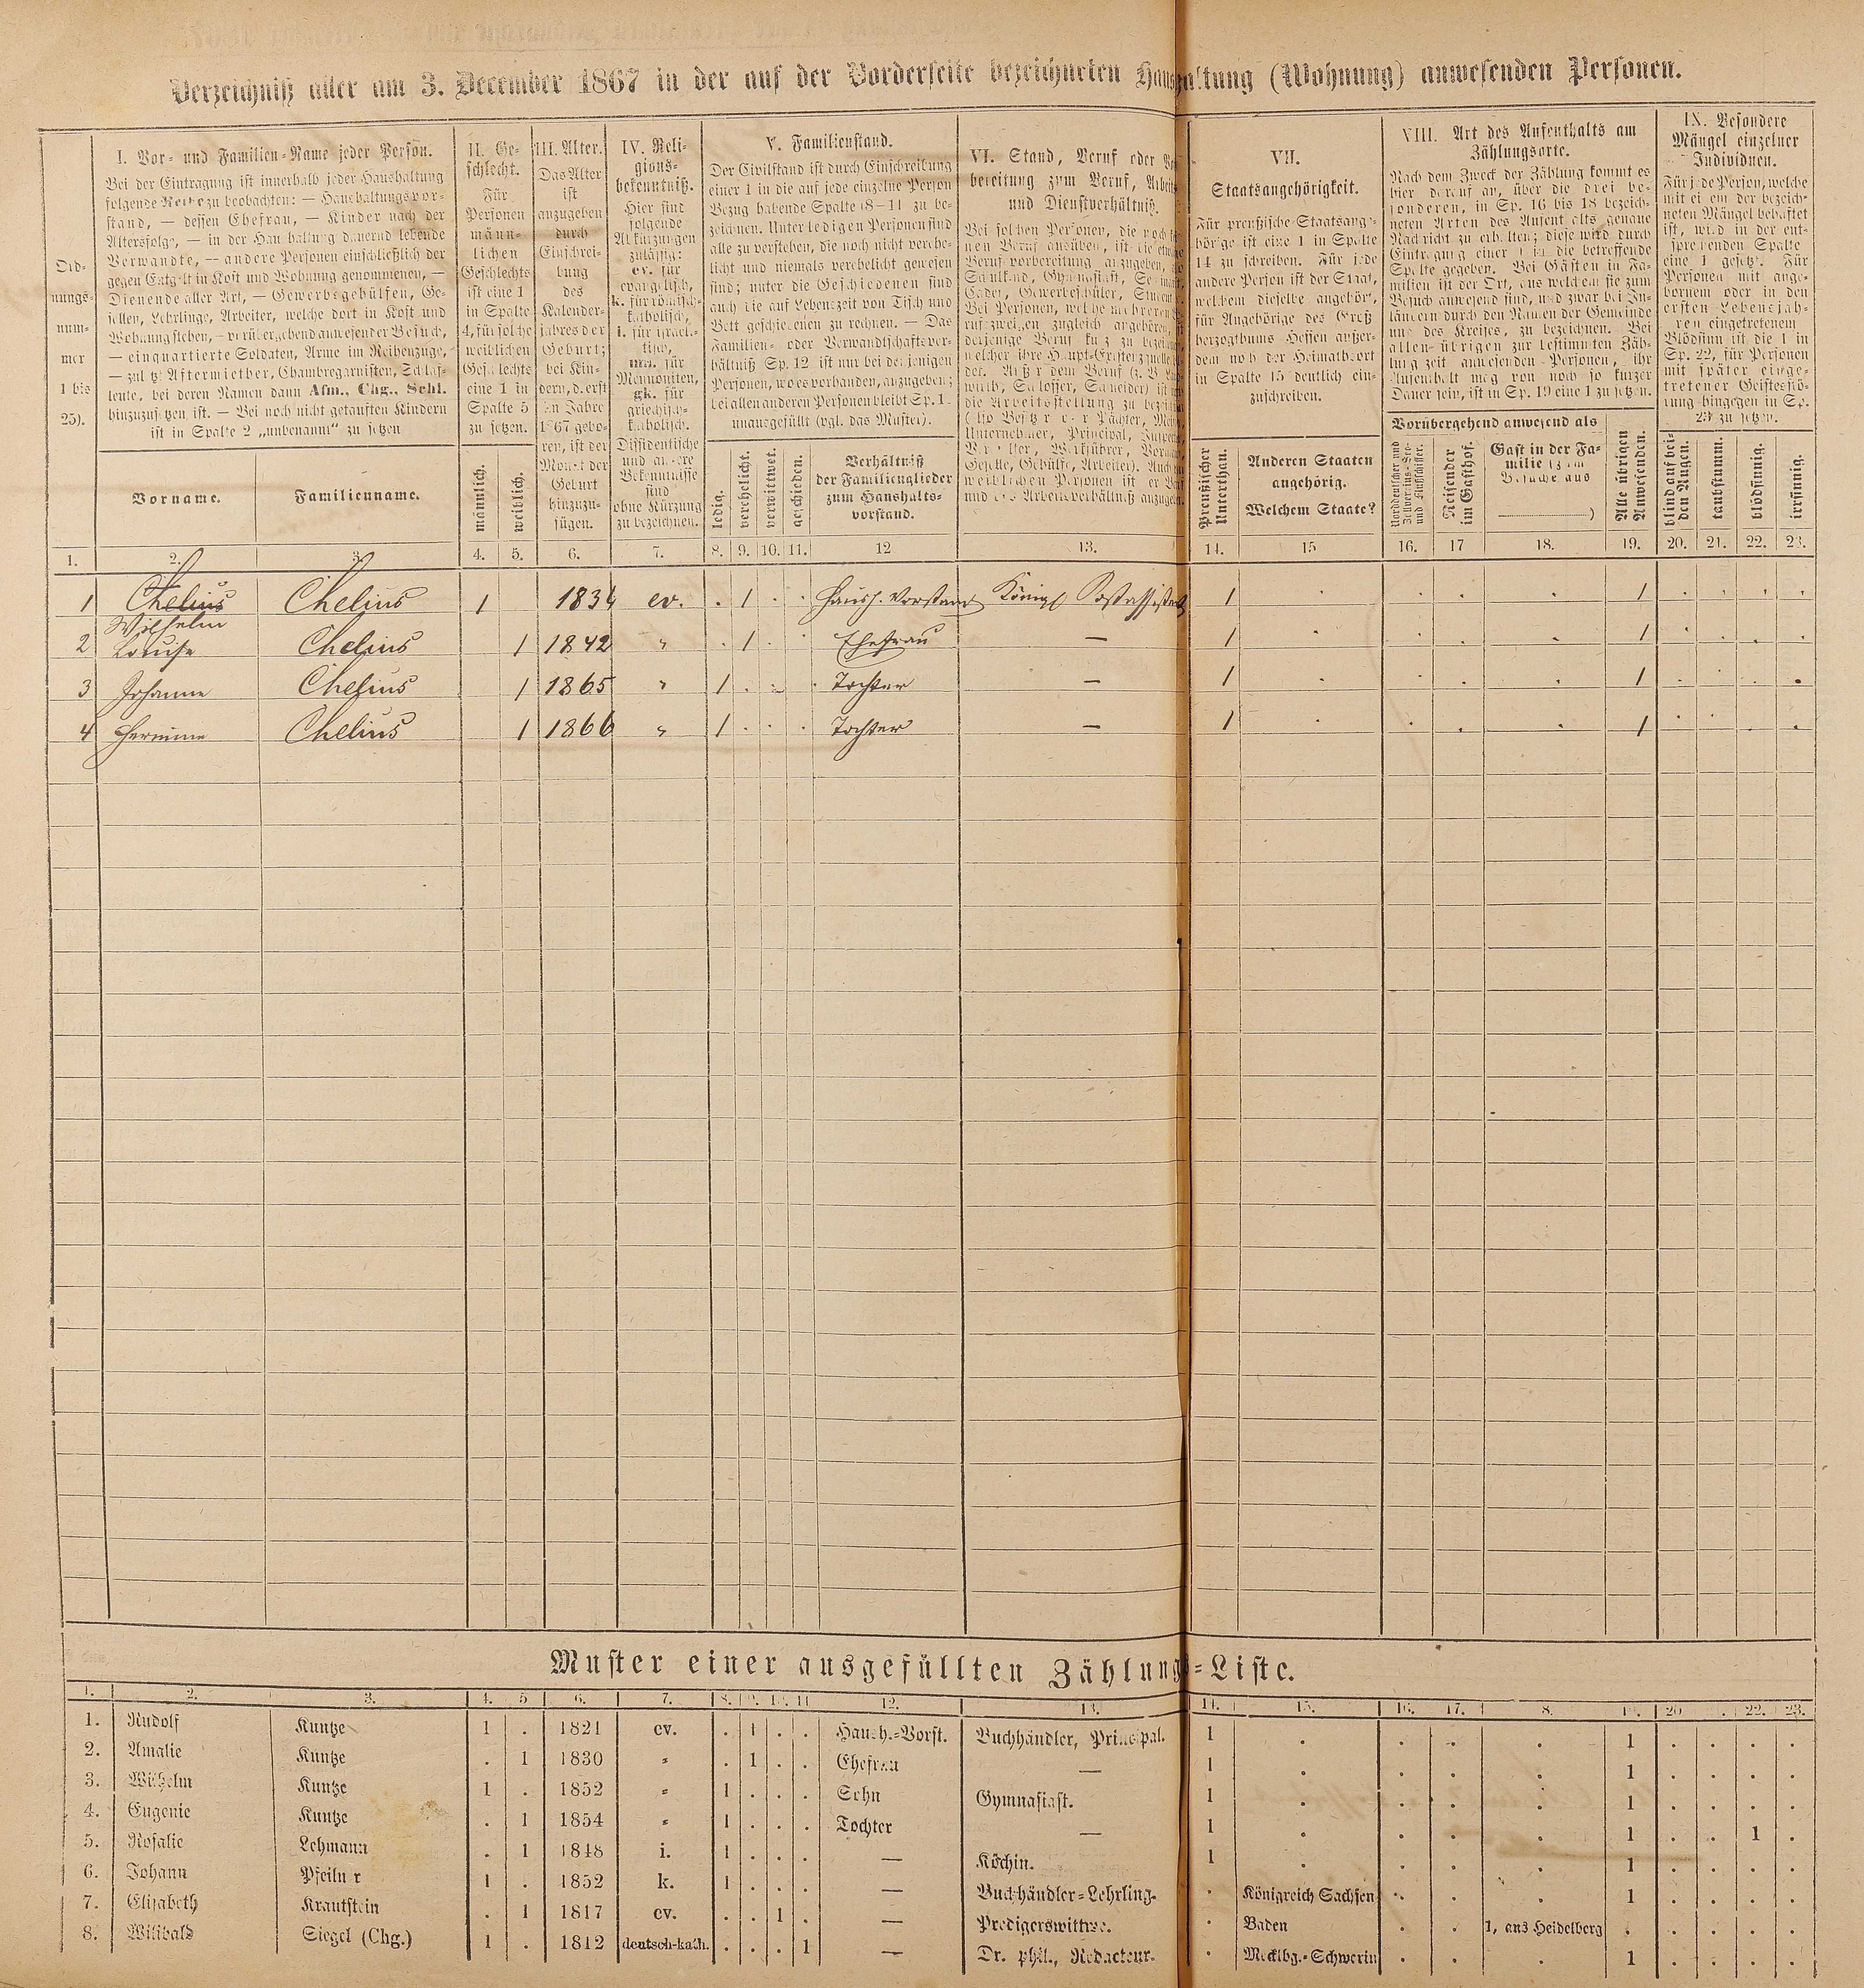 Verzeichniß aller am 3. December 1867 in der auf der Vorderseite bezeichneten Haushaltung (Wohnung) anwesenden Personen.
Ord-
nungs-
num-
mer
1 bis
25).
I. Vor- und Familien-Name jeder Person.
Bei der Eintragung ist innerhalb jeder Haushaltung
folgende Reihe zu beobachten: — Haushaltungsvor-
stand, — dessen Ehefrau, — Kinder nach der
Altersfolge, — in der Haushaltung dauernd lebende
Verwandte, — andere Personen einschließlich der
gegen Entgelt in Kost und Wohnung genommenen, —
Dienende aller Art, — Gewerbsgehülfen, Ge-
sellen, Lehrlinge, Arbeiter, welche dort in Kost und
Wohnung stehen, — vorübergehend anwesender Besuch,
— einquartierte Soldaten, Arme im Reihenzuge,
— zuletzt Aftermiether, Chambregarnisten, Schlaf-
leute, bei deren Namen dann Afm., Chg., Schl.
hinzuzusetzen ist. — Bei noch nicht getauften Kindern
ist in Spalte 2 „unbenannt" zu setzen
Vorname.
Familienname.
II. Ge-
schlecht.
Für
Personen
männ-
lichen
Geschlechts
ist eine 1
in Spalte
4, für solche
weiblichen
Geschlechts
eine 1 in
Spalte 5
zu setzen.
männlich.
weiblich.
III. Alter.
Das Alter
ist
anzugeben
durch
Einschrei-
bung
des
Kalender-
jahres der
Geburt;
bei Kin-
dern, d. erst
im Jahre
1867 gebo-
ren, ist der
Monat der
Geburt
hinzuzu-
fügen.
IV. Reli-
gions-
bekenntniß.
Hier sind
folgende
Abkürzungen
zulässig:
ev. für
evangelisch,
k. für römisch-
katholisch,
i. für israeli-
tisch,
mn. für
Mennoniten,
gk. für
griechisch-
katholisch.
Dissidentische
und andere
Bekenntnisse
sind
ohne Kürzung
zu bezeichnen.
V. Familienstand.
Der Civilstand ist durch Einschreibung
einer 1 in die auf jede einzelne Person
Bezug habende Spalte (8–11 zu be-
zeichnen. Unter ledigen Personen sind
alle zu verstehen, die noch nicht verehe-
licht und niemals verehelicht gewesen
sind; unter die Geschiedenen sind
auch die auf Lebenszeit von Tisch und
Bett geschiedenen zu rechnen. — Das
Familien- oder Verwandtschaftsver-
hältniß Sp. 12 ist nur bei denjenigen
Personen, wo es vorhanden, anzugeben;
bei allen anderen Personen bleibt Sp. 1
unausgefüllt (vgl. das Muster).
ledig.
verehelicht.
verwittwet.
geschieden.
Verhältniß
der Familienglieder
zum Haushalts-
vorstand.
VI. Stand, Beruf oder Vor
bereitung zum Beruf, Arbeits
und Dienstverhältniß.
VII.
Staatsangehörigkeit.
Für preußische Staatsange-
hörige ist eine 1 in Spalte
14 zu schreiben. Für jede
andere Person ist der Staat,
welchem dieselbe angehört,
für Angehörige des Groß
herzogthums Hessen außer-
dem noch der Heimathsort
in Spalte 15 deutlich ein-
zuschreiben.
Preußischer
Unterthan.
Anderen Staaten
angehörig.
Welchem Staate?
VIII. Art des Aufenthalts am
Zählungsorte.
Nach dem Zweck der Zählung kommt es
hier darauf an, über die drei be-
sonderen, in Sp. 16 bis 18 bezeich-
neten Arten des Aufenthalts genaue
Nachricht zu erhalten; diese wird durch
Eintragung einer 1 in die betreffende
Spalte gegeben. Bei Gästen in Fa-
milien ist der Ort, aus welchem sie zum
Besuch anwesend sind, und zwar bei In-
ländern durch den Namen der Gemeinde
und des Kreises, zu bezeichnen. Bei
allen übrigen zur bestimmten Zäh-
lungszeit anwesenden Personen, ihr
Aufenthalt mag von noch so kurzer
Dauer sein, ist in Sp. 19 eine 1 zu setzen.
Vorübergehend anwesend als
Norddeutscher und
Zollvereins-See-
und Flußschiffer.
Reisender
im Gasthof.
Gast in der Fa-
milie (zum
Besuche aus
)
Alle übrigen
Anwesenden.
IX. Besondere
Mängel einzelner
Individuen.
Für jede Person, welche
mit einem der bezeich-
neten Mängel behaftet
ist, wird in der ent-
sprechenden Spalte
eine 1 gesetzt. Für
Personen mit ange-
bornem oder in den
ersten Lebensjah-
ren eingetretenem
Blödsinn ist die 1 in
Sp. 22, für Personen
mit später einge-
tretener Geistesstö-
rung hingegen in Sp.
23 zu setzen.
blind auf bei-
den Augen.
taubstumm.
blödsinnig.
irrsinnig.
1. 2. 3. 4. 5. 6. 7. 8. 9. 10. 11. 12 13. 14. 15 16. 17 18. 19. 20. 21. 22. 23.
1 Chelius Chelius 1 1834 ev. . 1 . . Haush. Vorstand Königl Postassistent 1 . . . . 1 . . . .
Wilhelm
2 Louise Chelius 1 1842 " . 1 . . Ehefrau — 1 . . . . 1 . . . .
3 Johanne Chelius 1 1865 " 1 . . . Tochter — 1 . . . . 1 . . . .
4 Hermine Chelius 1 1866 " 1 . . . Tochter — 1 . . . . 1 . . . .
Muster einer ausgefüllten Zählungs-Liste.
1. 2. 3. 4. 5 6. 7. 8. 9. 10. 11 12. 13. 14. 15. 16. 17. 8. 19. 20 . 22. 23.
1. Rudolf Kuntze 1 . 1821 ev. . 1 . . Haush.-Vorst. Buchhändler, Principal. 1 . . . . 1 . . . .
2. Amalie Kuntze . 1 1830 " . 1 . . Ehefrau — 1 . . . . 1 . . . .
3. Wilhelm Kuntze 1 . 1852 " 1 . . . Sohn Gymnasiast. 1 . . . . 1 . . . .
4. Eugenie Kuntze . 1 1854 " 1 . . . Tochter — 1 . . . . 1 . . 1 .
5. Rosalie Lehmann . 1 1848 i. 1 . . . — Köchin. 1 . . . . 1 . . . .
6. Johann Pfeilner 1 . 1852 k. 1 . . . — Buchhändler-Lehrling. . Königreich Sachsen . . . 1 . . . .
7. Elisabeth Krautstein . 1 1817 ev. . . 1 . — Predigerswittwe. . Baden . . 1, aus Heidelberg . . . . .
8. Wilibald Siegel (Chg.) 1 . 1812 deutsch-kath. . . . 1 — Dr. phil., Redacteur. . Mecklbg.-Schwerin . . . 1 . . . .